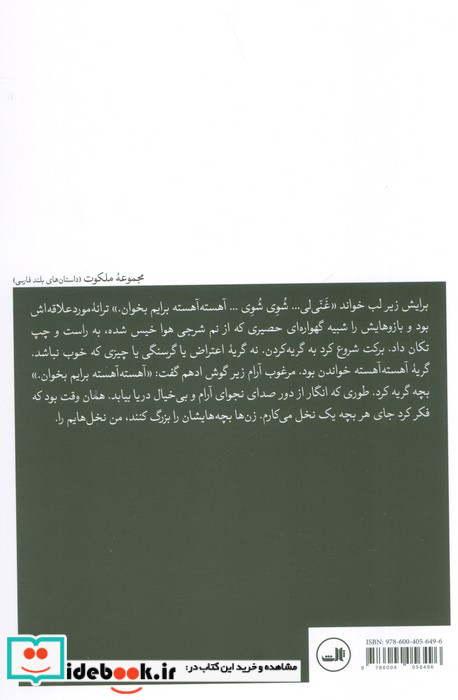 مجموعهٔ ملکوت (داستان‌های بلند فارسی)
برایش زیر لب خواند «غَنّی‌لی... شُوی شُوی ... آهسته‌آهسته برایم بخوان.» ترانهٔ موردعلاقه‌اش
بود و بازوهایش را شبیه گهواره‌ای حصیری که از نم شرجی هوا خیس شده، به راست و چپ
تکان داد. برکت شروع کرد به گریه‌کردن. نه گریهٔ اعتراض یا گرسنگی یا چیزی که خوب نباشد.
گریهٔ آهسته‌آهسته خواندن بود. مرغوب آرام زیر گوش ادهم گفت: «آهسته‌آهسته برایم بخوان.»
بچه گریه کرد. طوری که انگار از دور صدای نجوای آرام و بی‌خیال دریا بیاید. همان وقت بود که
فکر کرد جای هر بچه یک نخل می‌کارم. زن‌ها بچه‌هایشان را بزرگ کنند، من نخل‌هایم را.
ISBN: 978-600-405-649-6
9 786004 056496
ثالث
مشاهده و خرید این کتاب در:
idebook.ir